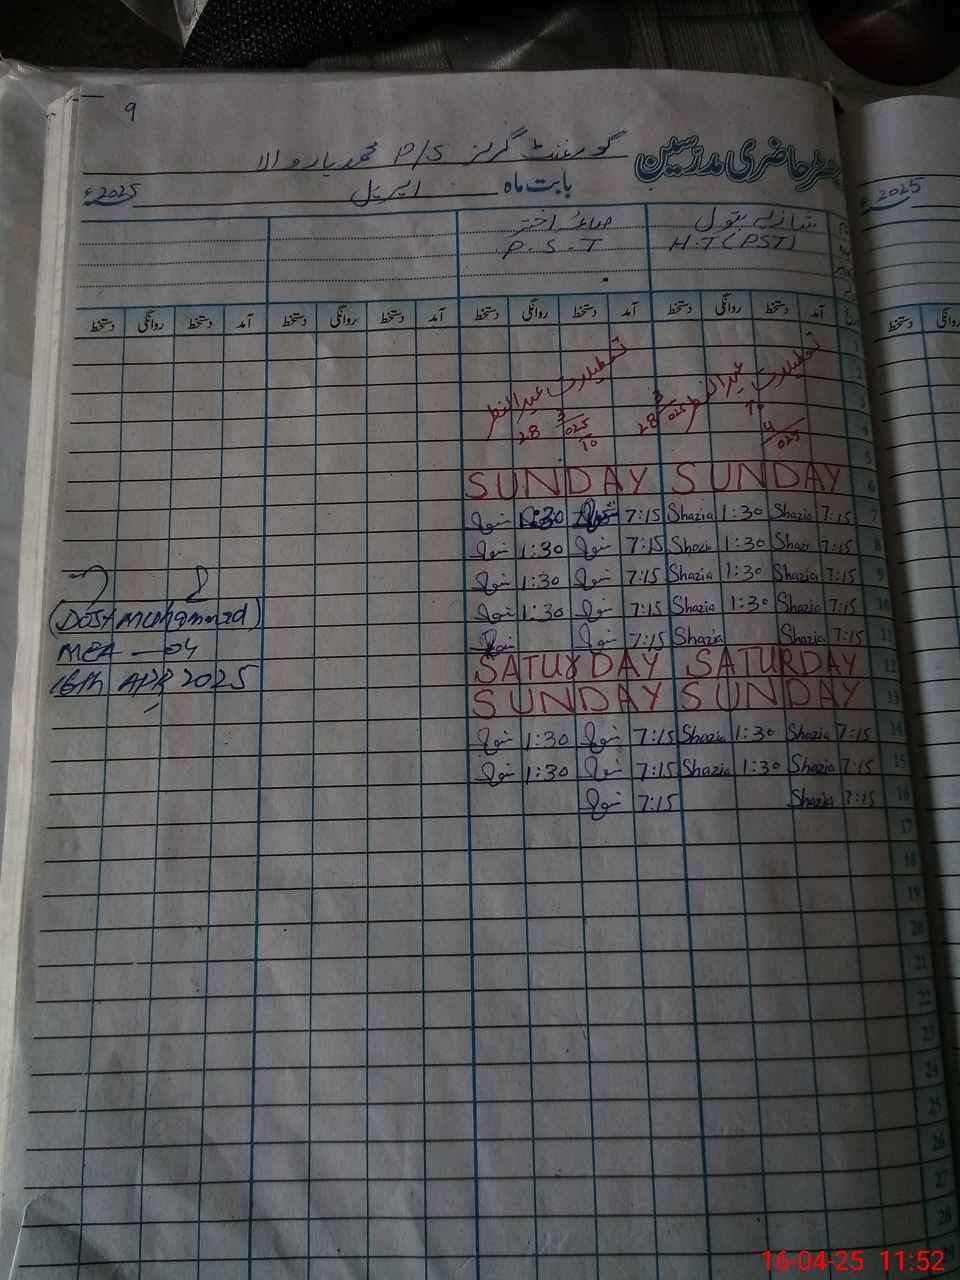 9
رجسٹر حاضری مدرسین گورنمنٹ گرلز P/S محمد یار والا
بابت ماہ اپریل 2025ء
شازیہ بتول اختر
H.T (PST) P.S.T
آمد دستخط روانگی دستخط آمد دستخط روانگی دستخط آمد دستخط روانگی دستخط آمد دستخط روانگی دستخط
1
2
تعطیلات عید الفطر تعطیلات عید الفطر
3
28 3/025 To 4/025 28 3/025 To
4
5
SUNDAY SUNDAY 6
1:30 7:15 Shazia 1:30 Shazia 7:15 7
1:30 7:15 Shazia 1:30 Shazia 7:15 8
1:30 7:15 Shazia 1:30 Shazia 7:15 9
1:30 7:15 Shazia 1:30 Shazia 7:15 10
7:15 Shazia Shazia 7:15 11
SATURDAY SATURDAY 12
SUNDAY SUNDAY 13
1:30 7:15 Shazia 1:30 Shazia 7:15 14
1:30 7:15 Shazia 1:30 Shazia 7:15 15
7:15 Shazia 7:15 16
17
18
19
20
21
22
23
24
25
26
27
28
(Dost Muhammad)
MEA — 04
16th APR 2025
2025ء
روانگی دستخط
16-04-25 11:52